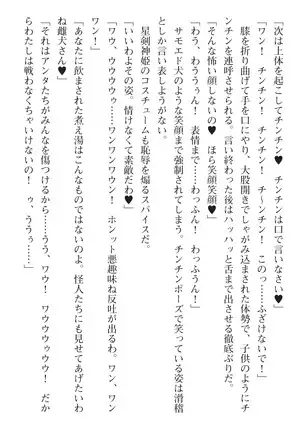 「次は上体を起こしてチンチン♥　チンチンは口で言いなさい♥」
「ワン！　チンチン！　チンチン！　チ～ンチン！　このっ……ふざけないで！」
膝を折り曲げて手を口にやり、大股開きでしゃがみ込まされた体勢で、子供のようにチ
ンチンを連呼させられる。言い終わった後はハッハッと舌まで出させる徹底ぶりだ。
「そんな怖い顔しないの♥　ほら笑顔笑顔♥」
「わう、わうぅぅ！　表情まで……わっふぅん！　わっふうん！」
サモエド犬のような笑顔まで強制されてしまう。チンチンポーズで笑っている姿は滑稽
としか言い表せない。
「いいわよその姿。情けなくて素敵だわ♥」
星剣神姫のコスチュームも恥辱を煽るスパイスだ。
「ワウ、ウウウウゥ……ワンワンワウン！　ホンット悪趣味ね反吐が出るわ。ワン、ワン
ワン！」
「あなたに飲まされた煮え湯はこんなものではないのよ。怪人たちにも見せてあげたいわ
ね雌犬さん♥」
「それはアンタたちがみんなを傷つけるから……うう、ワウ！　ワウウウゥウウ！　だか
らわたしは戦わなくちゃいけないの！　ゥ、ううぅ……」